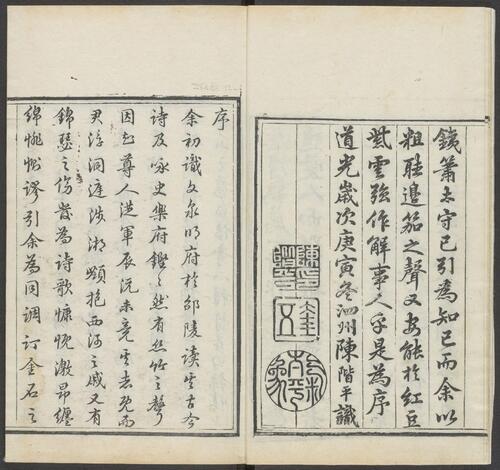 鐵簫太守已引為知己而余以
粗駐邉笳之聲又安能於紅豆
紫雲強作解事人乎是為序
道光歲次庚寅冬泗州陳階平識
序
余初識文泉明府於邵陵讀其古今
詩及咏史樂府鏗然有絲竹之聲
因知尊人從軍辰沅未竟其志既而
君浮洞庭涉湘頻抱西河之戚又有
錦瑟之傷發為詩歌慷慨激昂纏
綿悱惻謬引余為同調訂金石之